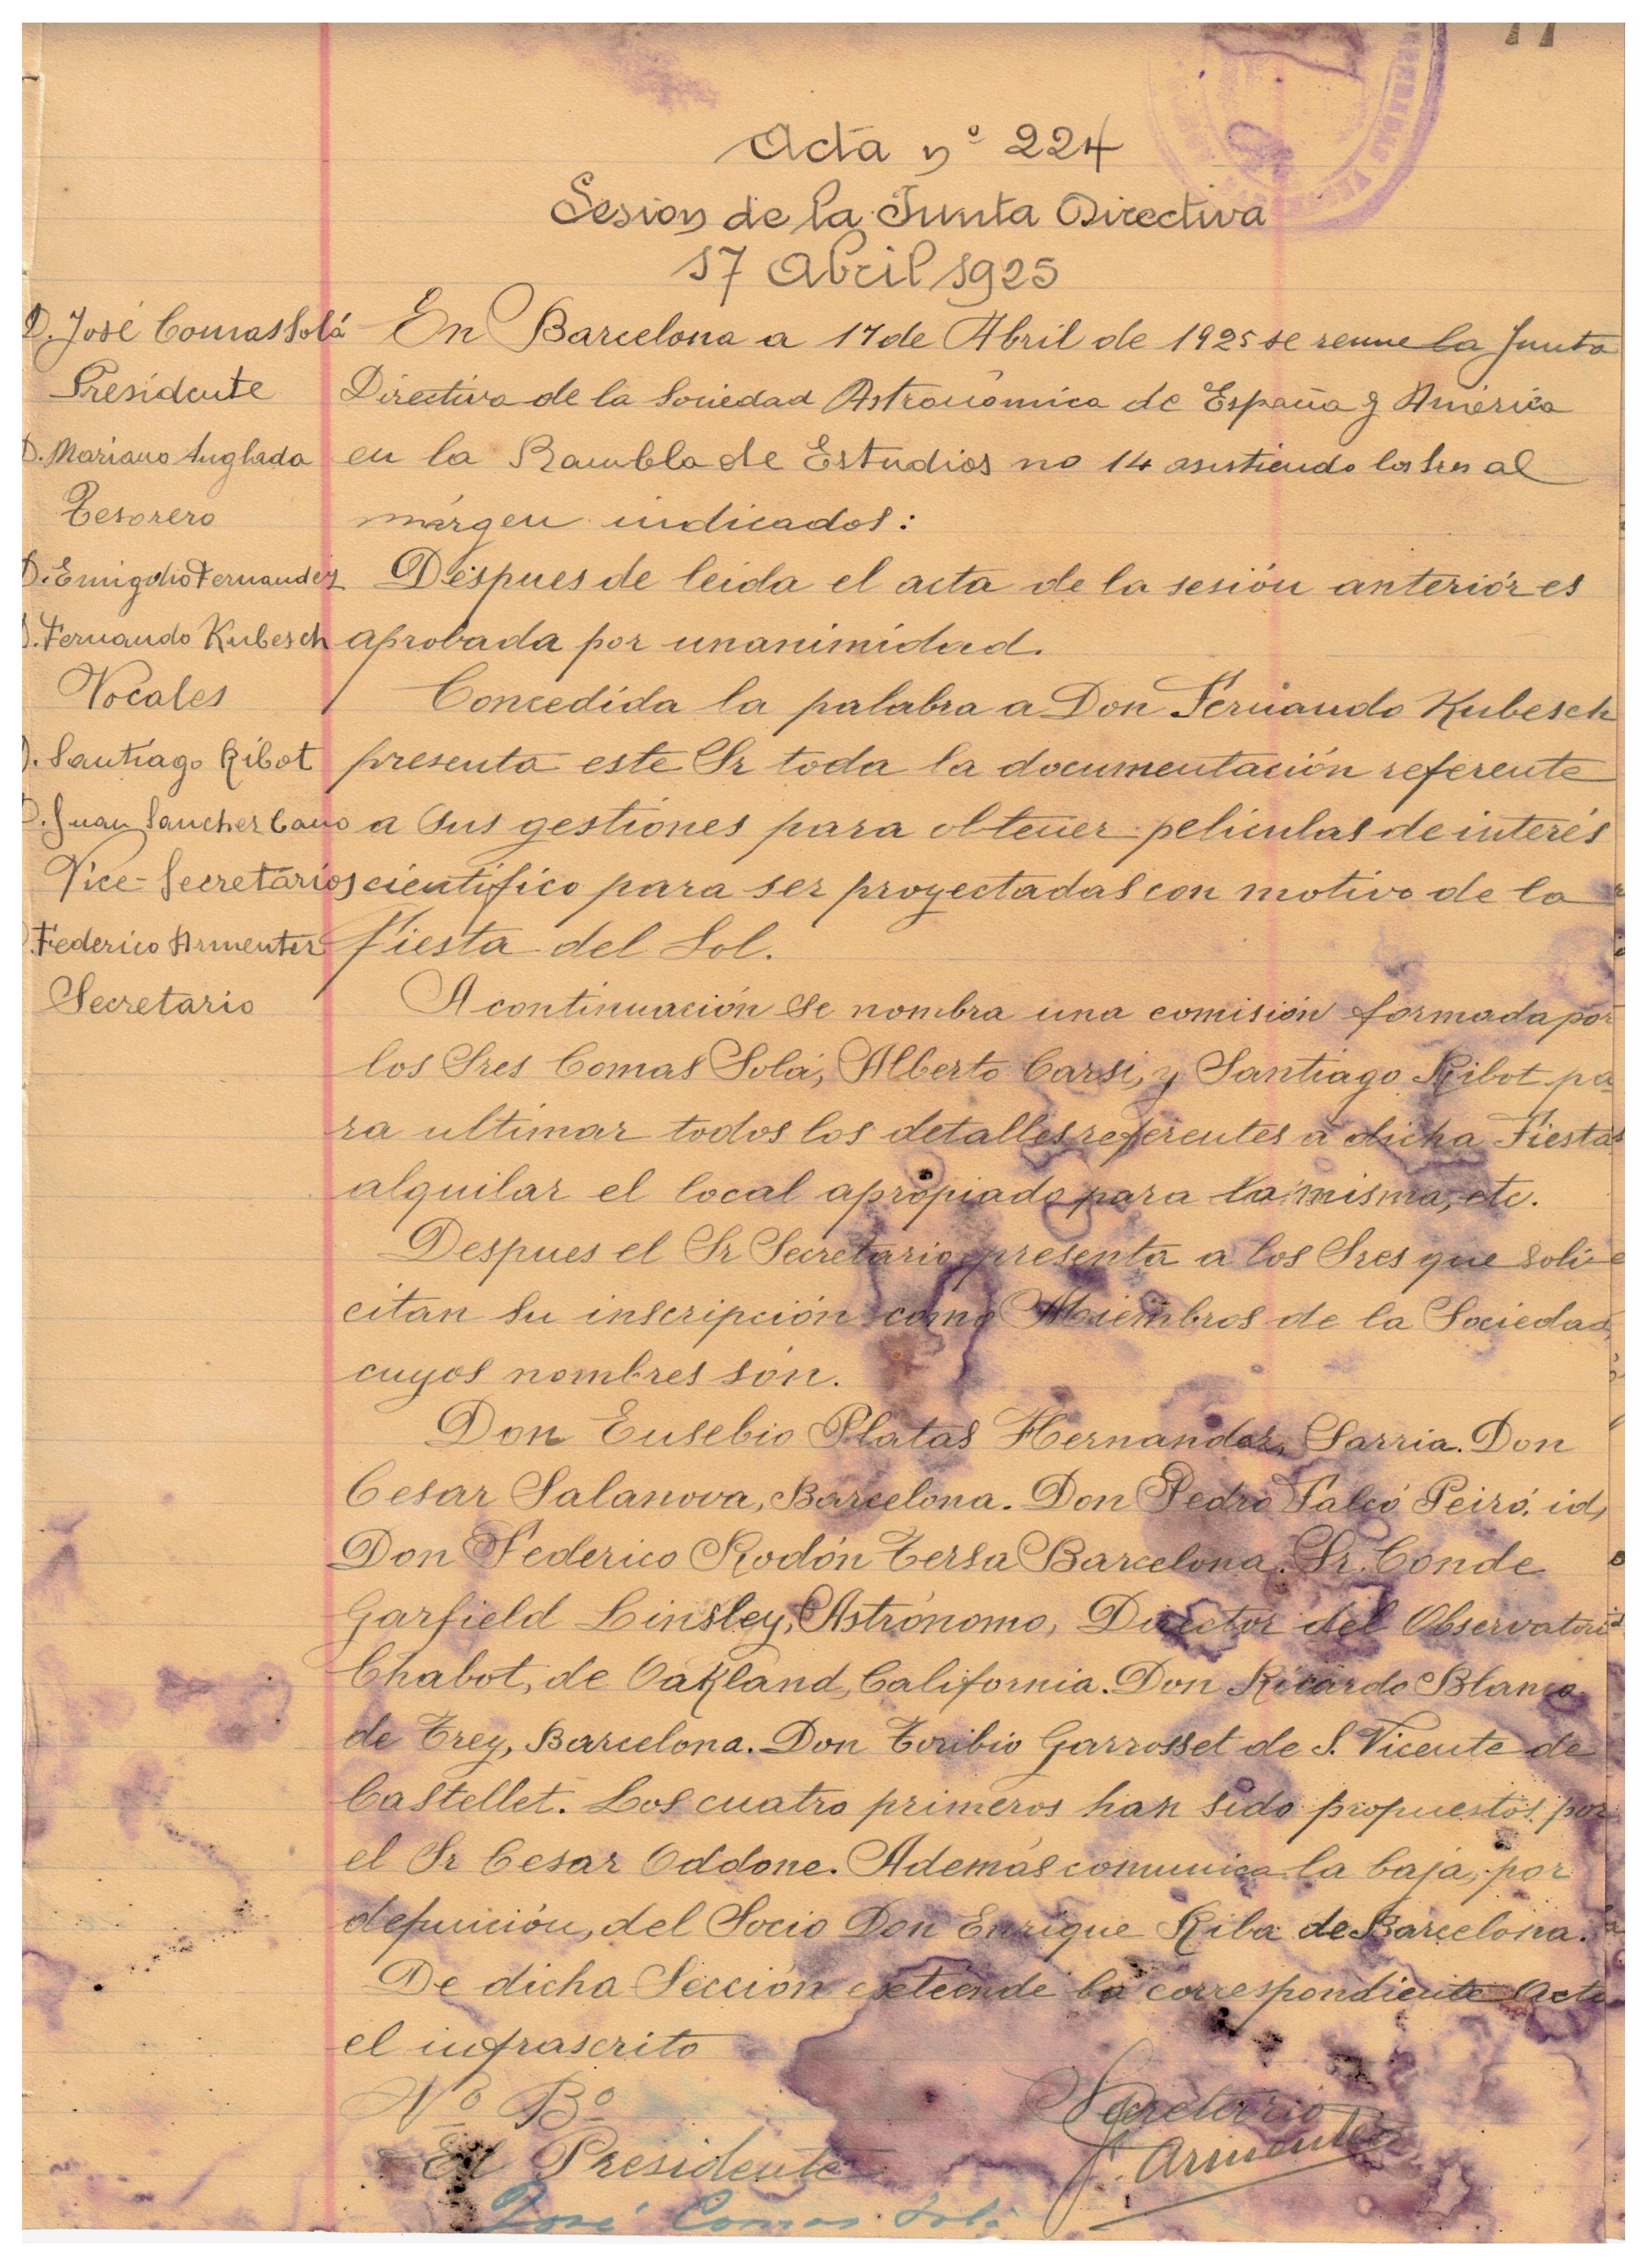 77
Acta nº 224
Sesion de la Junta Directiva
17 Abril 1925
D. José Comas Solá
Presidente
D. Mariano Anglada
Tesorero
D. Emigdio Fernandez
D. Fernando Kubesch
Vocales
D. Santiago Ribot
D. Juan Sanchez Cano
Vice-Secretarios
D. Federico Armenter
Secretario
En Barcelona a 17 de Abril de 1925 se reune la Junta
Directiva de la Sociedad Astronómica de España y América
en la Rambla de Estudios no 14 asistiendo los Sres al
márgen indicados:
Déspues de leida el acta de la sesión anteriór es
aprobada por unanimidad.
Concedida la palabra a Don Fernando Kubesch
presenta este Sr toda la documentación referente
a sus gestiones para obtener peliculas de interés
cientifico para ser proyectadas con motivo de la
Fiesta del Sol.
A continuación se nombra una comisión formada por
los Sres Comas Solá, Alberto Carsi, y Santiago Ribot pa
ra ultimar todos los detalles referentes a dicha Fiesta
alquilar el local apropiado para la misma, etc.
Despues el Sr Secretario presenta a los Sres que soli-
citan su inscripción como Miembros de la Sociedad,
cuyos nombres són.
Don Eusebio Platas Hernandez, Sarria. Don
Cesar Salanova, Barcelona. Don Pedro Falcó Peiró, id,
Don Federico Rodón Tersa Barcelona. Sr. Conde
Garfield Linsley, Astrónomo, Director del Observatorio
Chabot, de Oakland, California. Don Ricardo Blanco
de Trey, Barcelona. Don Toribio Garrosset de S. Vicente de
Castellet. Los cuatro primeros han sido propuestos por
el Sr Cesar Oddone. Además comunica la baja, por
defunción, del Socio Don Enrique Riba de Barcelona.
De dicha Sección extiende la correspondiente Acta
el infrascrito
Vº Bº
El Presidente
José Comas Solá
Secretario
F. Armenter